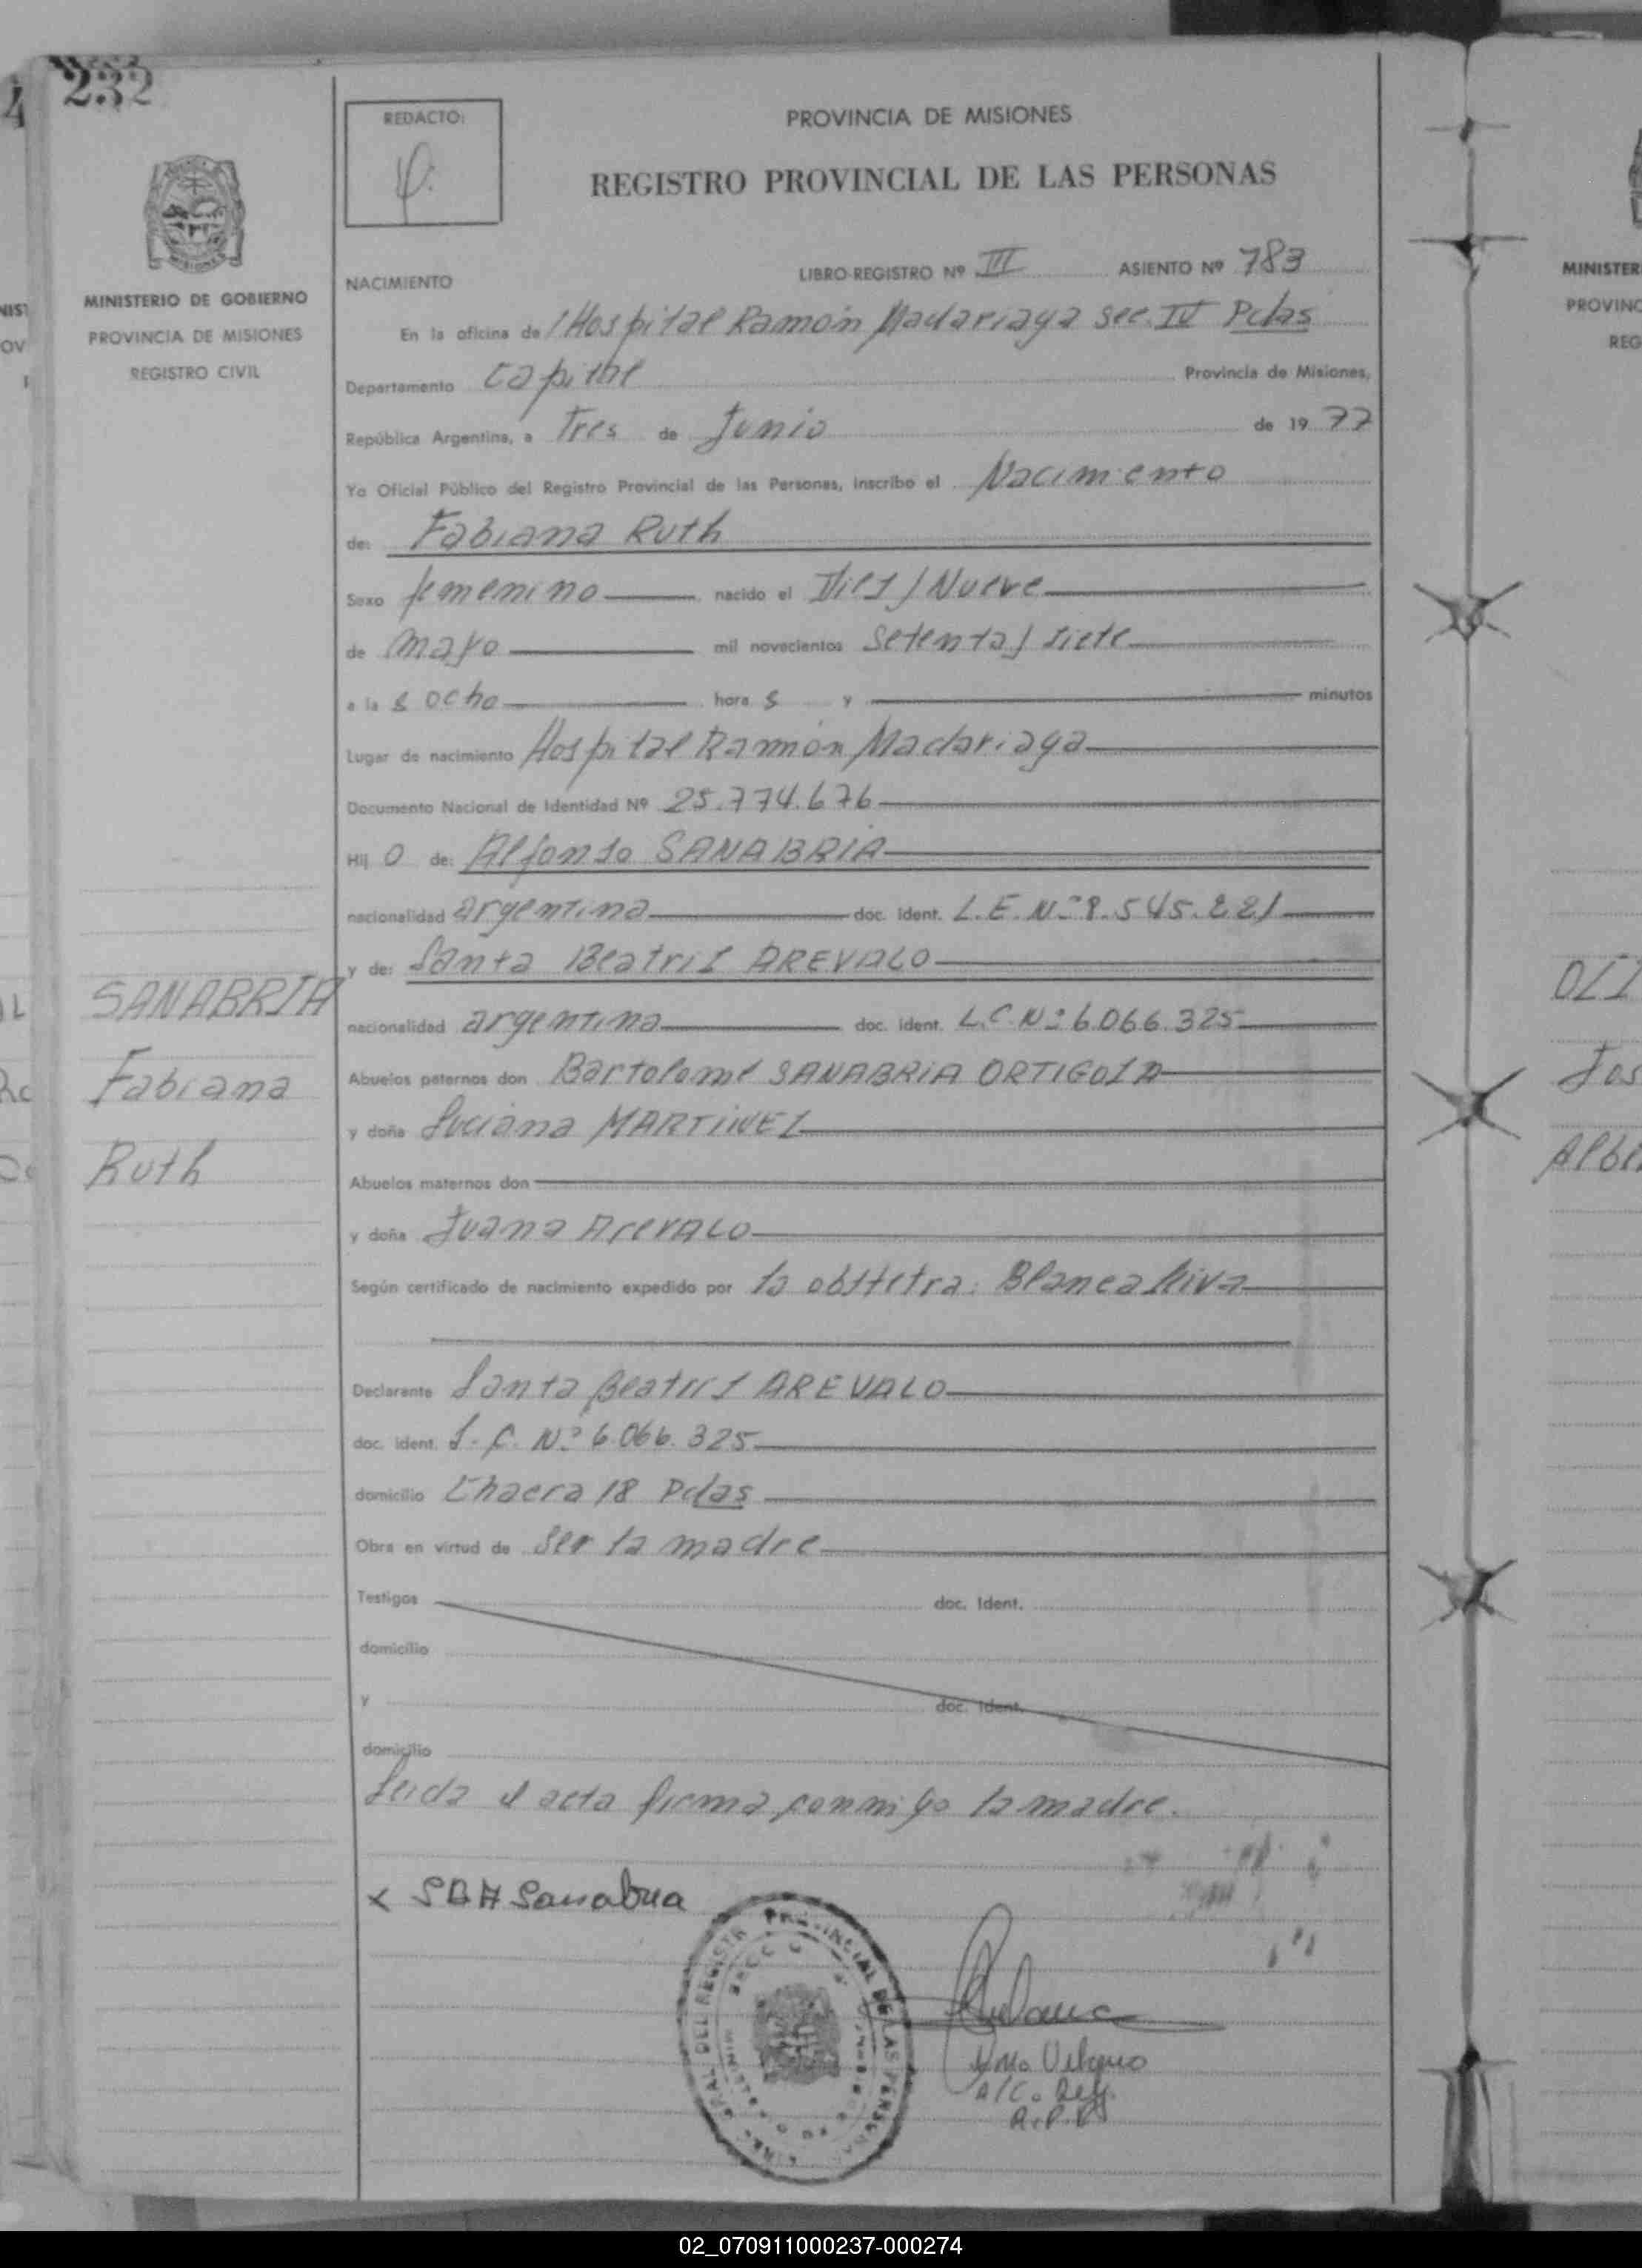 232
REDACTO:
PROVINCIA DE MISIONES
REGISTRO PROVINCIAL DE LAS PERSONAS
MINISTERIO DE GOBIERNO
PROVINCIA DE MISIONES
REGISTRO CIVIL
NACIMIENTO LIBRO-REGISTRO Nº III ASIENTO Nº 783
En la oficina de Hospital Ramón Madariaga Sec. IV Pdas
Departamento Capital Provincia de Misiones,
República Argentina, a Tres de Junio de 1977
Yo Oficial Público del Registro Provincial de las Personas, inscribo el Nacimiento
de: Fabiana Ruth
Sexo femenino nacido el Diez y Nueve
de mayo mil novecientos setenta y siete
a las ocho horas y minutos
Lugar de nacimiento Hospital Ramón Madariaga
Documento Nacional de Identidad Nº 25.774.676
Hijo de: Alfonso SANABRIA
nacionalidad argentina doc. ident. L.E. Nº 8.545.221
y de: Santa Beatriz AREVALO
nacionalidad argentina doc. ident. L.C. Nº 6.066.325
Abuelos paternos don Bartolomé SANABRIA ORTIGOZA
y doña Luciana MARTINEZ
Abuelos maternos don
y doña Juana AREVALO
Según certificado de nacimiento expedido por la obstetra: Blanca Riva
Declarante Santa Beatriz AREVALO
doc. ident. L.C. Nº 6.066.325
domicilio Chacra 18 Pdas
Obra en virtud de ser la madre
Testigos doc. Ident.
domicilio
y doc. ident.
domicilio
Leida el acta firma conmigo la madre.
SANABRIA
Fabiana
Ruth
x SBA Sanabria
A/C. Reg.
02_070911000237-000274